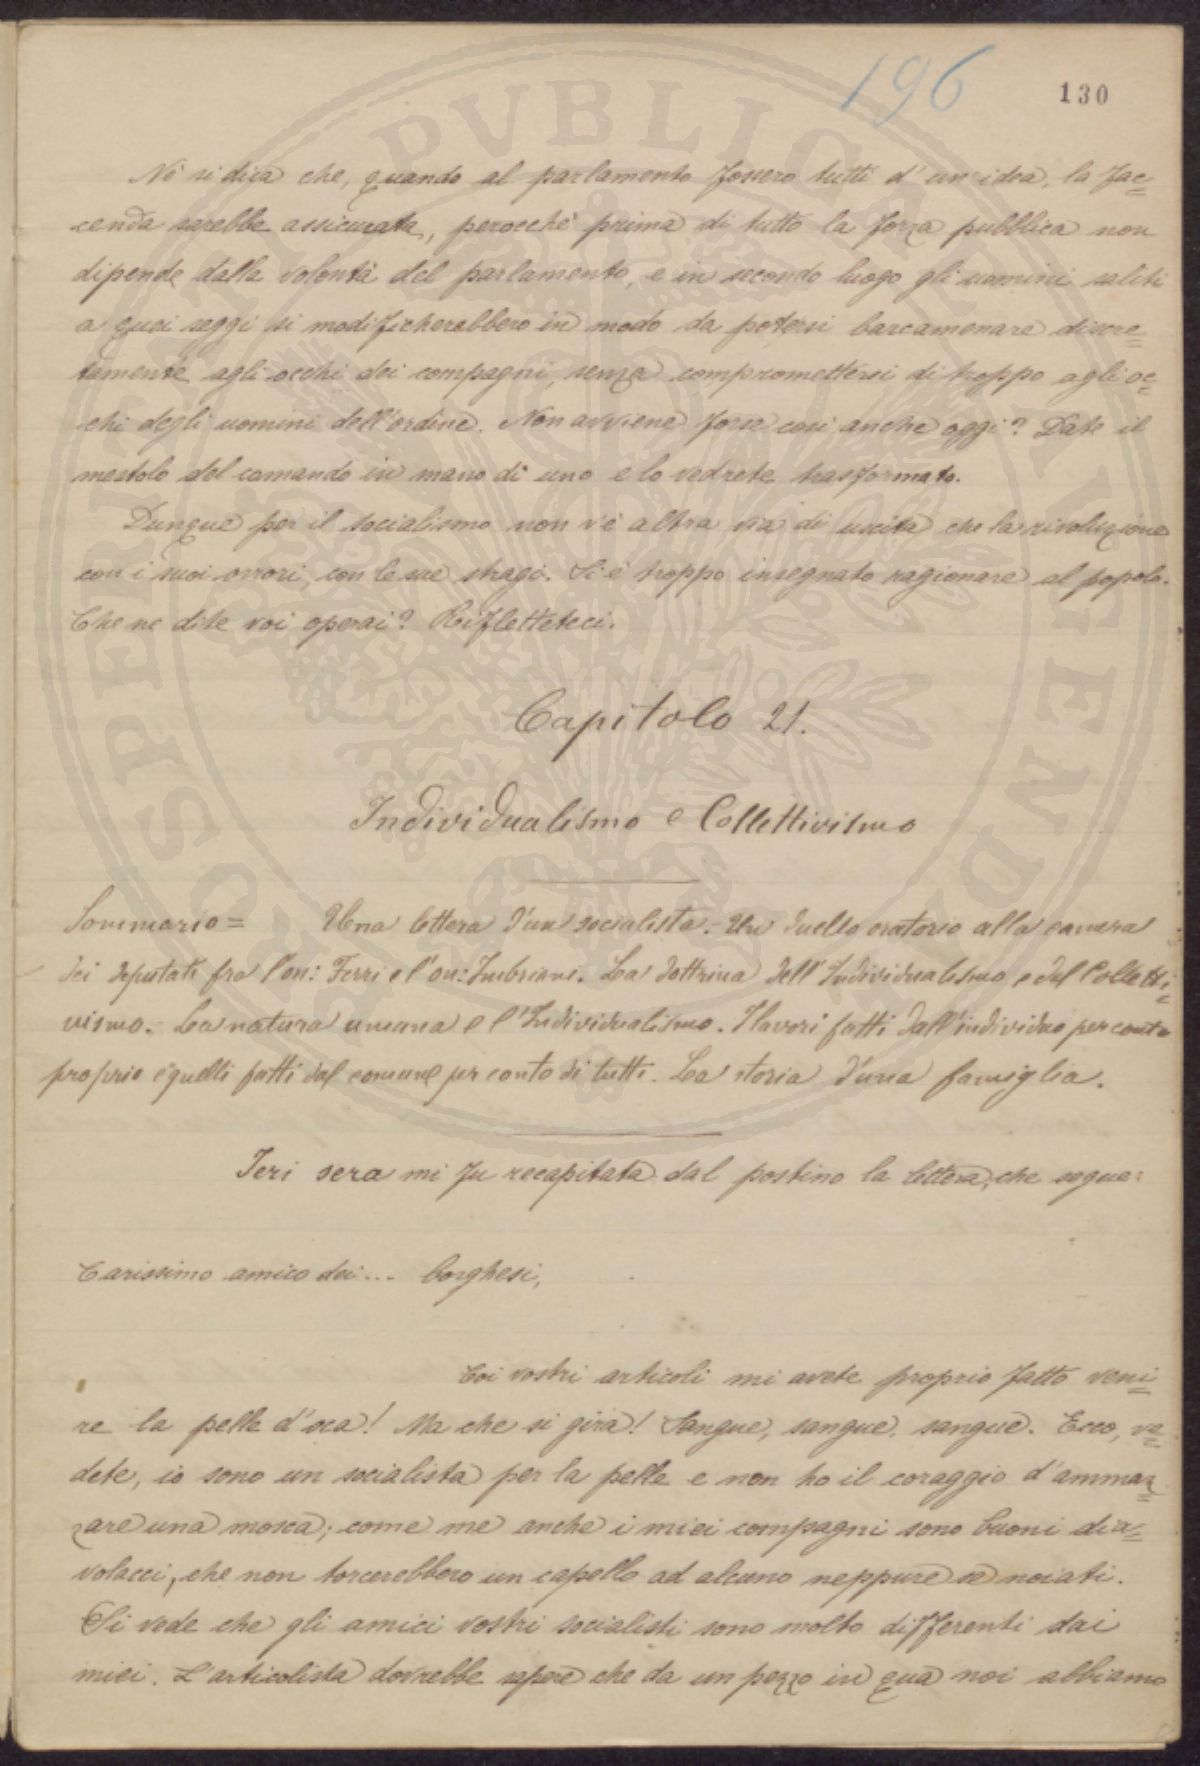 196
130
Nè si dica che, quando al parlamento fossero tutti d'un'idea, la fac=
cenda sarebbe assicurata, perocchè prima di tutto la forza pubblica non
dipende dalla volontà del parlamento, e in secondo luogo gli uomini saliti
a quei seggi si modificherebbero in modo da potersi barcamenare discre=
tamente agli occhi dei compagni, senza compromettersi di troppo agli oc=
chi degli uomini dell'ordine. Non avviene forse così anche oggi? Date il
mestolo del comando in mano di uno e lo vedrete trasformato.
Dunque per il socialismo non v'è altra via di uscita che la rivoluzione
con i suoi orrori, con le sue stragi. Si è troppo insegnato ragionare al popolo.
Che ne dite voi operai? Rifletteteci.
Capitolo 21.
Individualismo e Collettivismo
Sommario= Una lettera d'un socialista.- Un duello oratorio alla camera
dei deputati fra l'on: Ferri e l'on: Imbriani. La dottrina dell'Individualismo e del Colletti=
vismo.- La natura umana e l'Individualismo. I lavori fatti dall'individuo per conto
proprio e quelli fatti dal comune per conto di tutti. La storia d'una famiglia.
Ieri sera mi fu recapitata dal postino la lettera, che segue:
Carissimo amico dei... borghesi,
Coi vostri articoli mi avete proprio fatto veni=
re la pelle d'oca! Ma che si gira! Sangue, sangue, sangue. Ecco, ve=
dete, io sono un socialista per la pelle e non ho il coraggio d'ammaz=
zare una mosca; come me anche i miei compagni sono buoni dia=
volacci, che non torcerebbero un capello ad alcuno neppure se noiati.
Si vede che gli amici vostri socialisti sono molto differenti dai
miei. L'articolista dovrebbe sapere che da un pezzo in quà noi abbiamo
PVBLICAE